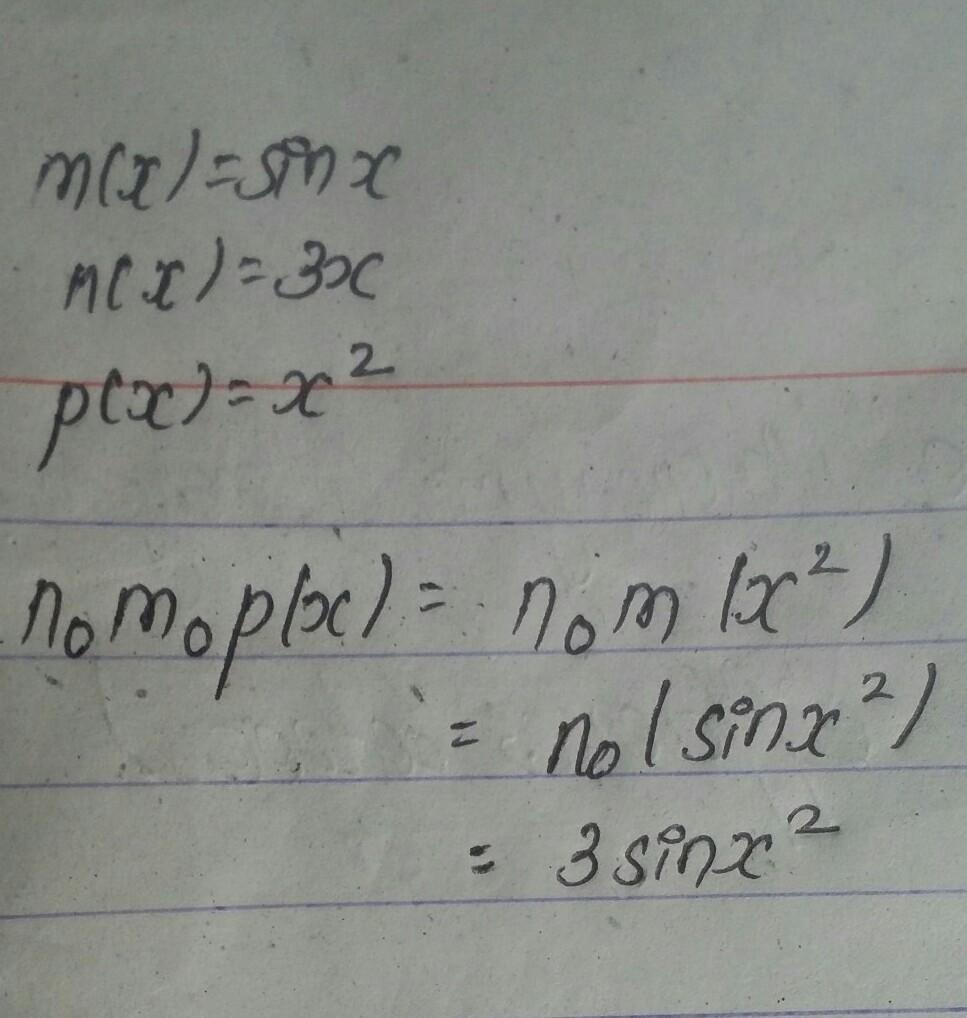 m(x)=sinx
n(x)=3x
p(x)=x²
nₒmₒp(x)= nₒm(x²)
= nₒ(sinx²)
= 3sinx²